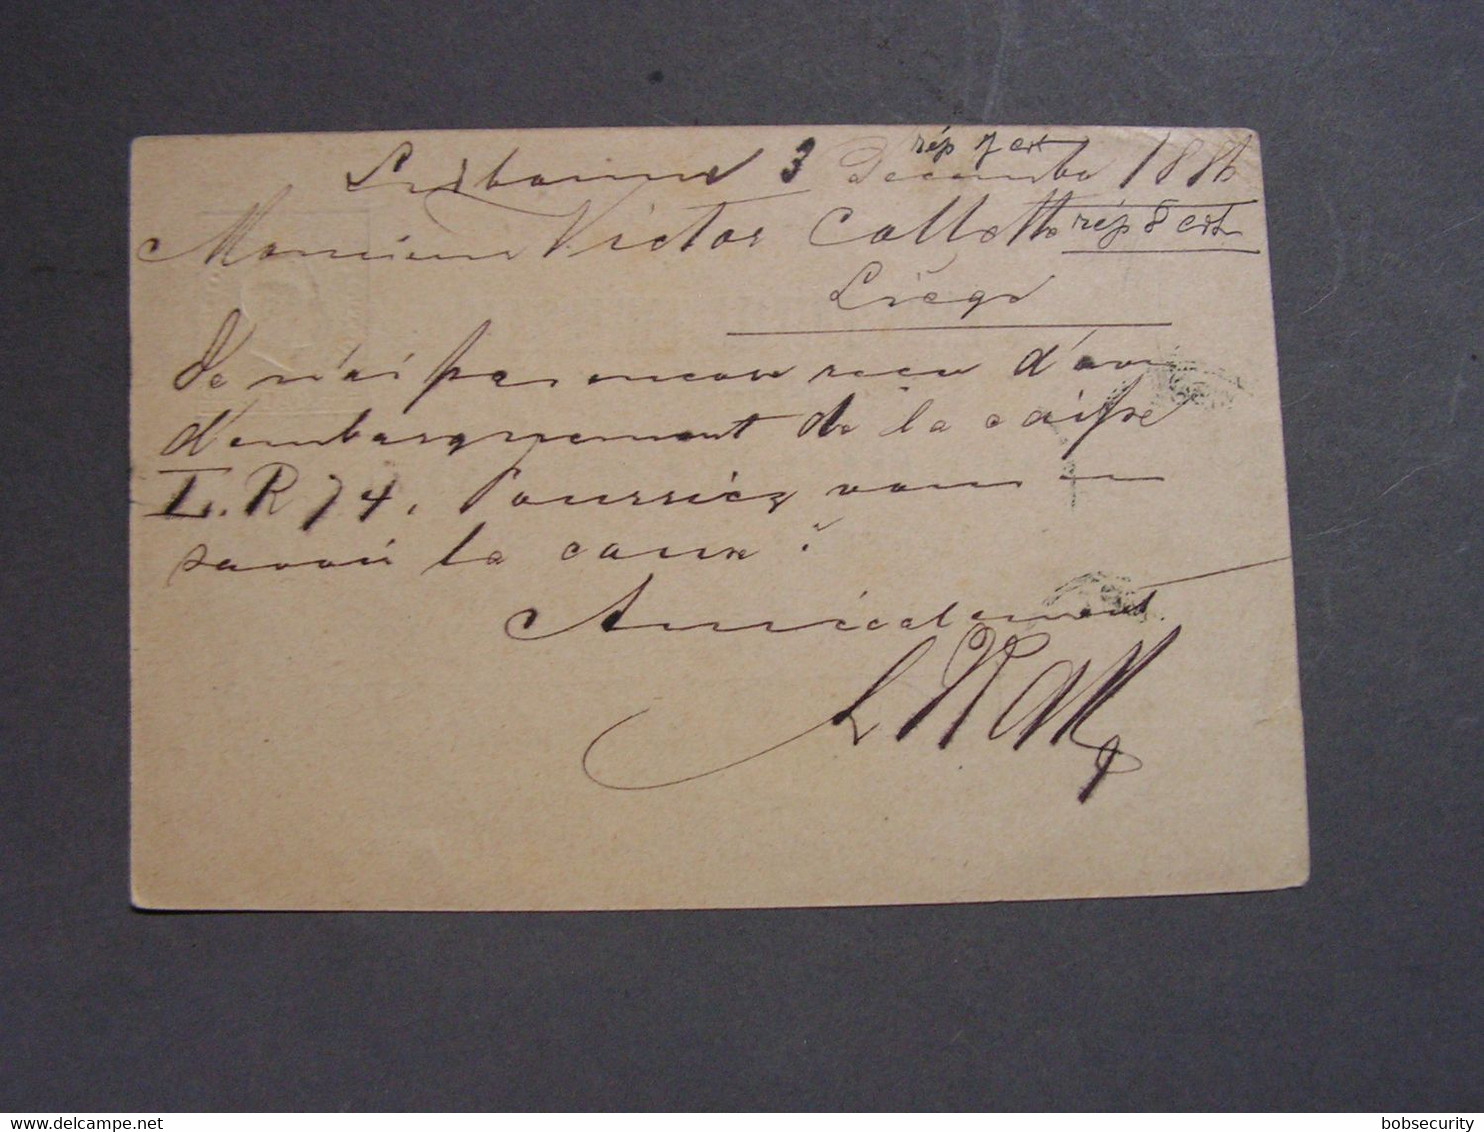 rép 7 crt
Lisbonne 3 Décembre 1886
Monsieur Victor Collette rép 8 crt
Liège
Je n'ai pas encore reçu d'avis
d'embarquement de la caisse
L.R 74. Pourriez vous en
savoir la cause?
Amicalement
bobsecurity